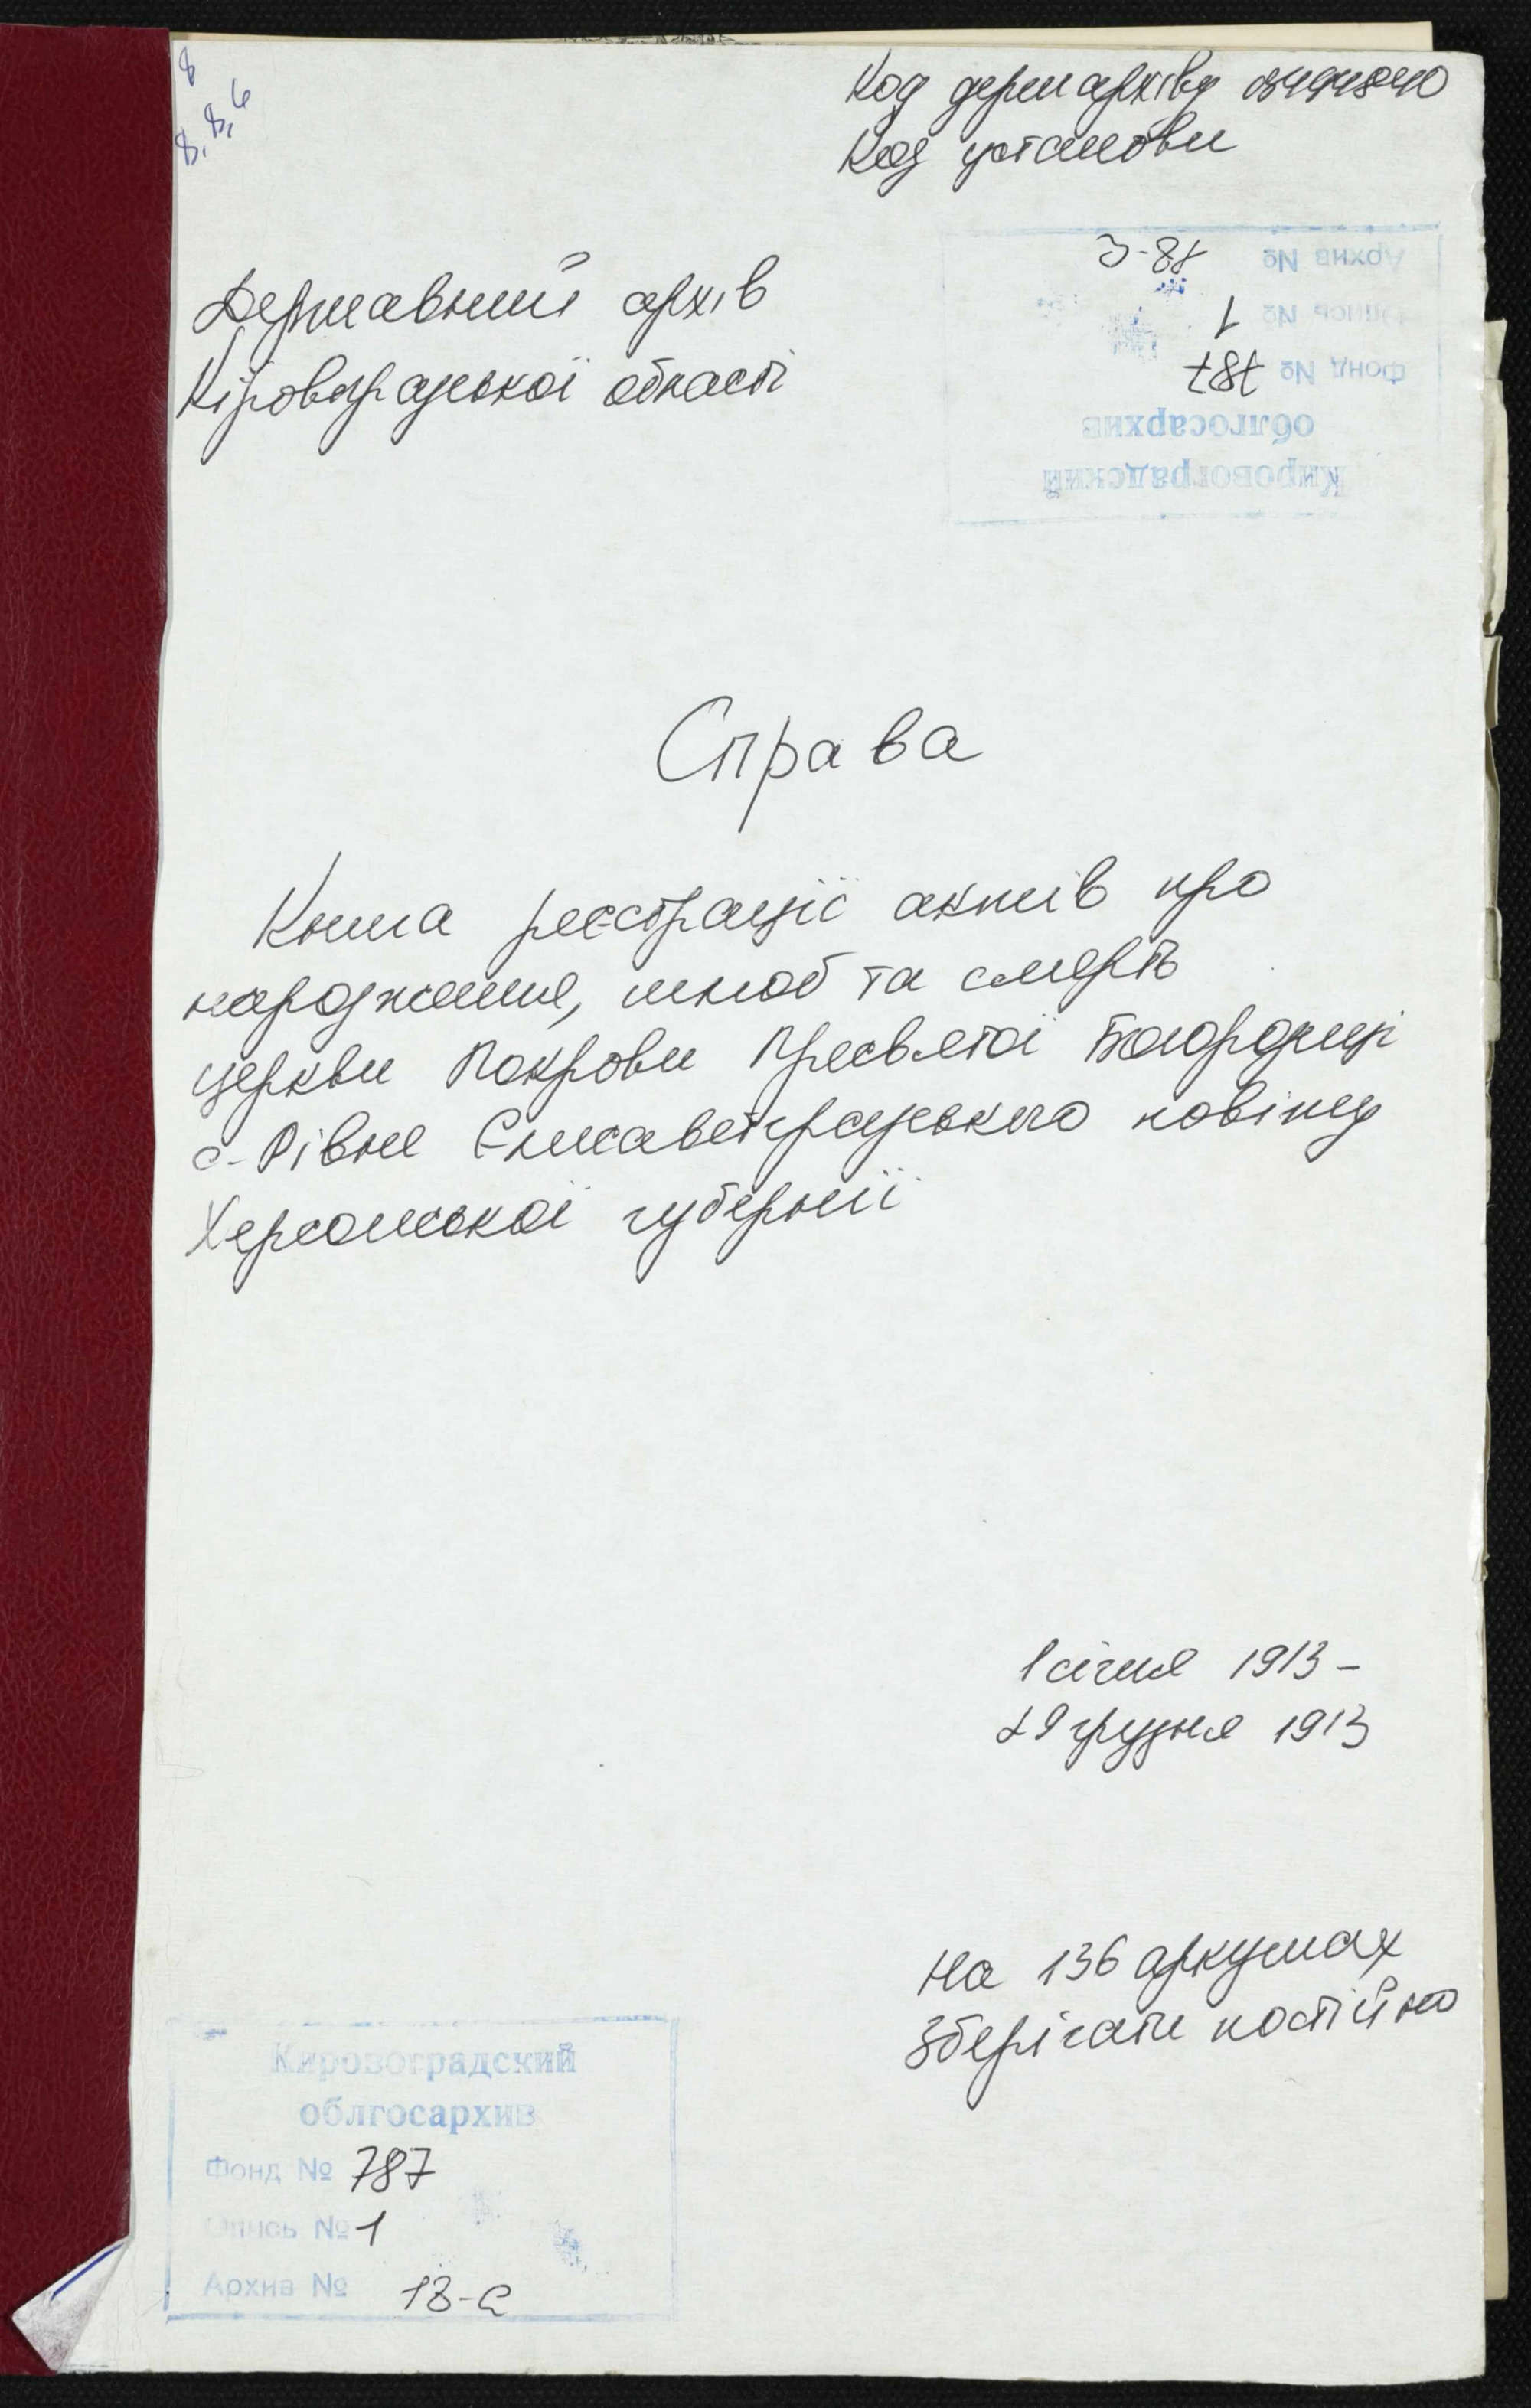 8
8, 8, 6
Код держархіву 03494840
Код установи
Архив № 18-С
Опись № 1
Фонд № 787
облгосархив
Кировоградский
Державний архів
Кіровоградської області
Справа
Книга реєстрації актів про
народження, шлюб та смерть
церкви Покрови Пресвятої Богородиці
с. Рівне Єлисаветградського повіту
Херсонської губернії
1 січня 1913 –
29 грудня 1913
На 136 аркушах
Зберігати постійно
Кировоградский
облгосархив
Фонд № 787
Опись № 1
Архив № 18-С